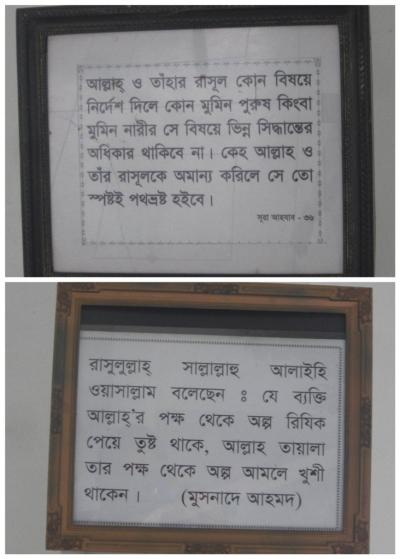 আল্লাহ্ ও তাঁহার রাসূল কোন বিষয়ে
নির্দেশ দিলে কোন মুমিন পুরুষ কিংবা
মুমিন নারীর সে বিষয়ে ভিন্ন সিদ্ধান্তের
অধিকার থাকিবে না। কেহ আল্লাহ ও
তাঁর রাসূলকে অমান্য করিলে সে তো
স্পষ্টই পথভ্রষ্ট হইবে।
সূরা আহযাব - ৩৬
রাসুলুল্লাহ্ সাল্লাল্লাহু আলাইহি
ওয়াসাল্লাম বলেছেন ঃ যে ব্যক্তি
আল্লাহ্'র পক্ষ থেকে অল্প রিযিক
পেয়ে তুষ্ট থাকে, আল্লাহ তায়ালা
তার পক্ষ থেকে অল্প আমলে খুশী
থাকেন। (মুসনাদে আহমদ)